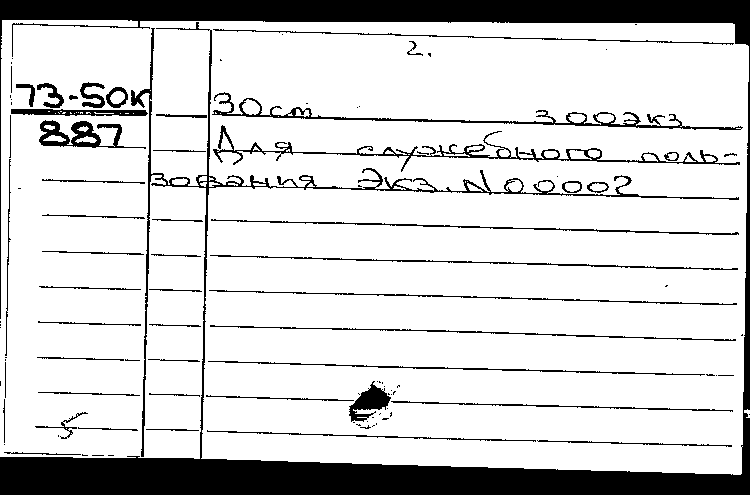 2.
73-50к
887
30 ст. 300экз
Для служебного поль-
зования. Экз. N 00002
5